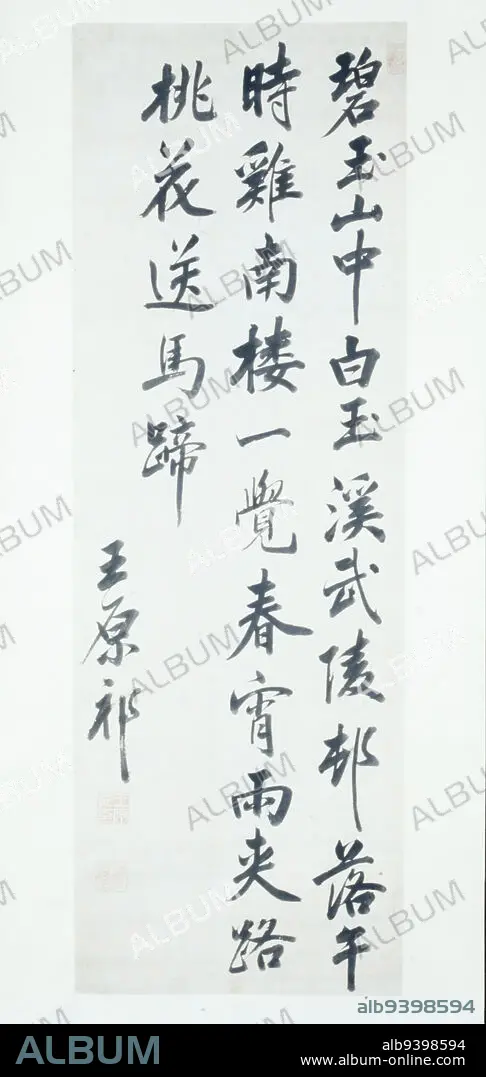 碧玉山中白玉溪武陵邨落午
時雞南樓一覺春宵雨夾路
桃花送馬蹄
王原祁
ALBUM
alb9398594
ALBUM
alb9398594
www.album-online.com